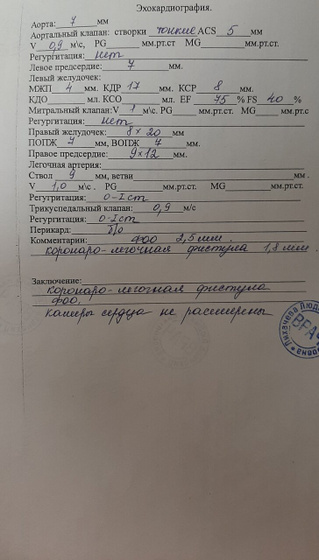 Эхокардиография.
Аорта: 7 мм
Аортальный клапан: створки тонкие ACS 5 мм
V 0,9 м\с, PG мм.рт.ст MG мм.рт.ст.
Регургитация: нет
Левое предсердие: 7 мм.
Левый желудочек:
МЖП 4 мм. КДР 17 мм. КСР 8 мм.
КДО мл. КСО мл. EF 75 % FS 40 %
Митральный клапан: V 1 м\с. PG мм.рт.ст. MG мм.рт.с
Регургитация: нет
Правый желудочек: 8х20 мм
ПОПЖ 7 мм, ВОПЖ 7 мм.
Правое предсердие: 9х12 мм.
Легочная артерия:
Ствол 9 мм, ветви мм.
V 1,0 м\с. PG мм.рт.ст. MG мм.рт.ст.
Регургитация: 0-I ст
Трикуспедальный клапан: 0,9 м/с
Регургитация: 0-I ст
Перикард: б/о
Комментарии: ФОО 2,5 мм.
коронаро-легочная фистула 1,8 мм.
Заключение:
Коронаро-легочная фистула
ФОО.
камеры сердца не расширены
Лихачева Людм
ВРАЧ